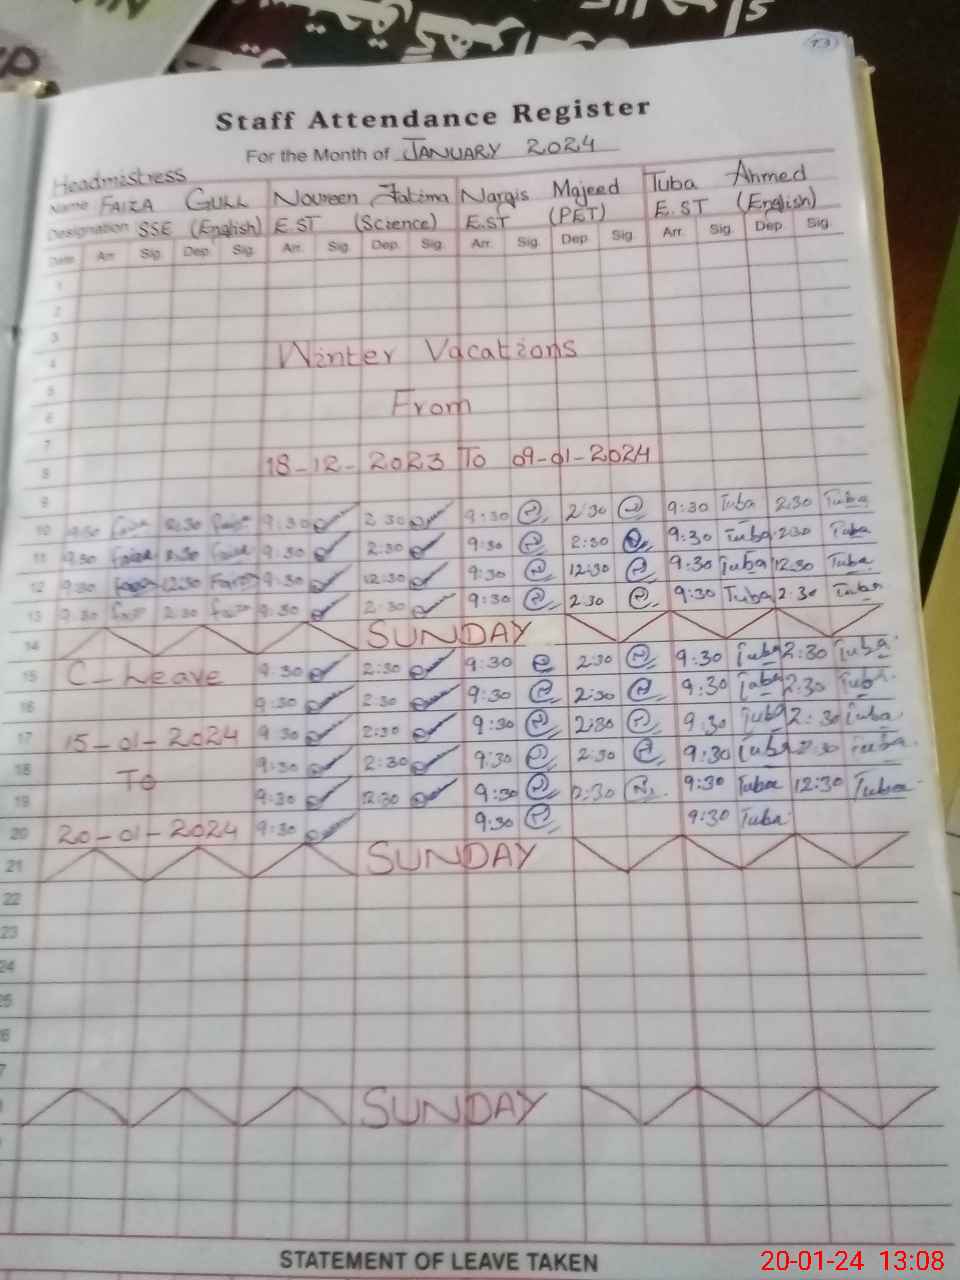 13
Staff Attendance Register
For the Month of JANUARY 2024
Headmistress
Name FAIZA GULL Noureen Fatima Nargis Majeed Tuba Ahmed
Designation SSE (English) E.ST (Science) E.ST (PET) E.ST (English)
Date Arr. Sig. Dep. Sig. Arr. Sig. Dep. Sig. Arr. Sig. Dep. Sig. Arr. Sig. Dep. Sig.
1
2
3
4 Winter Vacations
5
6 From
7
8 18-12-2023 To 09-01-2024
9
10 9:30 Faiza 2:30 Faiza 9:30 2:30 9:30 2:30 9:30 Tuba 2:30 Tuba
11 9:30 Faiza 2:30 Faiza 9:30 2:30 9:30 2:30 9:30 Tuba 2:30 Tuba
12 9:30 Faiza 12:30 Faiza 9:30 12:30 9:30 12:30 9:30 Tuba 12:30 Tuba
13 9:30 Faiza 2:30 Faiza 9:30 2:30 9:30 2:30 9:30 Tuba 2:30 Tuba
14 SUNDAY
15 C-Leave 9:30 2:30 9:30 2:30 9:30 Tuba 2:30 Tuba
16 9:30 2:30 9:30 2:30 9:30 Tuba 2:30 Tuba
17 15-01-2024 9:30 2:30 9:30 2:30 9:30 Tuba 2:30 Tuba
18 To 9:30 2:30 9:30 2:30 9:30 Tuba 2:30 Tuba
19 9:30 12:30 9:30 9:30 Tuba 12:30 Tuba
20 20-01-2024 9:30 9:30 9:30 Tuba
21 SUNDAY
22
23
24
25
26
27
SUNDAY
STATEMENT OF LEAVE TAKEN
20-01-24 13:08